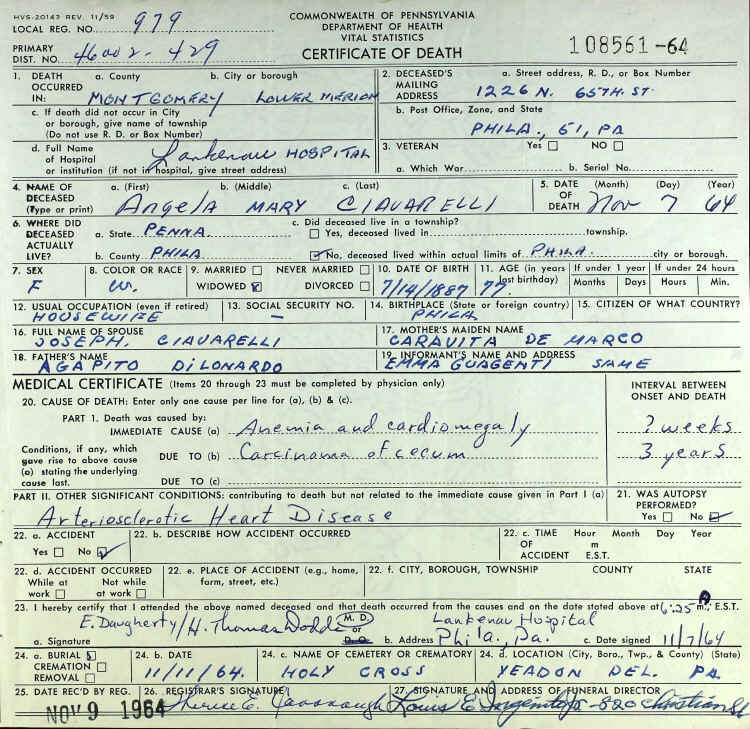 HVS-20143 REV. 11/59
LOCAL REG. NO. 979
COMMONWEALTH OF PENNSYLVANIA
DEPARTMENT OF HEALTH
VITAL STATISTICS
PRIMARY DIST. NO. 46002-429
CERTIFICATE OF DEATH
108561-64
1. DEATH OCCURRED IN: a. County b. City or borough
MONTGOMERY LOWER MERION
c. If death did not occur in City or borough, give name of township (Do not use R. D. or Box Number)
d. Full Name of Hospital or institution (if not in hospital, give street address) Lankenau HOSPITAL
2. DECEASED'S MAILING ADDRESS a. Street address, R. D., or Box Number
1226 N. 65TH. ST.
b. Post Office, Zone, and State
PHILA., 51, PA
3. VETERAN Yes NO
a. Which War b. Serial No.
4. NAME OF DECEASED (Type or print) a. (First) b. (Middle) c. (Last)
Angela MARY CIAVARELLI
5. DATE OF DEATH (Month) (Day) (Year)
Nov 7 64
6. WHERE DID DECEASED ACTUALLY LIVE? a. State PENNA
b. County PHILA
c. Did deceased live in a township?
Yes, deceased lived in township.
No, deceased lived within actual limits of PHILA. city or borough.
7. SEX F
8. COLOR OR RACE W.
9. MARRIED NEVER MARRIED
WIDOWED DIVORCED
10. DATE OF BIRTH 7/14/1887
11. AGE (in years last birthday) 77
If under 1 year Months Days
If under 24 hours Hours Min.
12. USUAL OCCUPATION (even if retired) HOUSEWIFE
13. SOCIAL SECURITY NO. –
14. BIRTHPLACE (State or foreign country) PHILA
15. CITIZEN OF WHAT COUNTRY?
16. FULL NAME OF SPOUSE JOSEPH. CIAVARELLI
17. MOTHER'S MAIDEN NAME CARAVITA DE MARCO
18. FATHER'S NAME AGAPITO DILONARDO
19. INFORMANT'S NAME AND ADDRESS EMMA GUAGENTI SAME
MEDICAL CERTIFICATE (Items 20 through 23 must be completed by physician only)
INTERVAL BETWEEN ONSET AND DEATH
20. CAUSE OF DEATH: Enter only one cause per line for (a), (b) & (c).
PART 1. Death was caused by:
IMMEDIATE CAUSE (a) Anemia and cardiomegaly ? weeks
Conditions, if any, which gave rise to above cause (a) stating the underlying cause last.
DUE TO (b) Carcinoma of cecum 3 years
DUE TO (c)
PART II. OTHER SIGNIFICANT CONDITIONS: contributing to death but not related to the immediate cause given in Part I (a)
Arteriosclerotic Heart Disease
21. WAS AUTOPSY PERFORMED? Yes No
22. a. ACCIDENT Yes No
22. b. DESCRIBE HOW ACCIDENT OCCURRED
22. c. TIME OF ACCIDENT Hour Month Day Year
m E.S.T.
22. d. ACCIDENT OCCURRED While at work Not while at work
22. e. PLACE OF ACCIDENT (e.g., home, farm, street, etc.)
22. f. CITY, BOROUGH, TOWNSHIP COUNTY STATE
23. I hereby certify that I attended the above named deceased and that death occurred from the causes and on the date stated above at 6:25 A m. E.S.T.
E. Daugherty/H. Thomas Dodds M.D. or D.O. Lankenau Hospital
a. Signature b. Address Phila., Pa. c. Date signed 11/7/64
24. a. BURIAL CREMATION REMOVAL
24. b. DATE 11/11/64.
24. c. NAME OF CEMETERY OR CREMATORY HOLY CROSS
24. d. LOCATION (City, Boro., Twp., & County) (State) YEADON DEL. PA
25. DATE REC'D BY REG. NOV 9 1964
26. REGISTRAR'S SIGNATURE E. Cavanaugh
27. SIGNATURE AND ADDRESS OF FUNERAL DIRECTOR Louis E. -820 Christian St